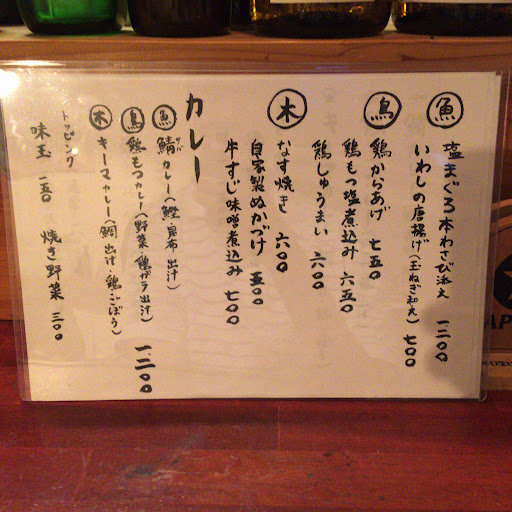 魚
塩まぐろ本わさび添え 一二〇〇
いわしの唐揚げ(玉ねぎ和え) 七〇〇
鳥
鶏からあげ 七五〇
鶏もつ塩煮込み 六五〇
鶏しゅうまい 六〇〇
木
なす焼き 六〇〇
自家製ぬかづけ 五〇〇
牛すじ味噌煮込み 七〇〇
カレー
魚 鯖カレー(鰹昆布出汁)
鳥 鶏もつカレー(野菜・鶏ガラ出汁) 一二〇〇
木 キーマカレー(鯛出汁・鶏・ごぼう)
トッピング
味玉 一五〇 焼き野菜 三〇〇